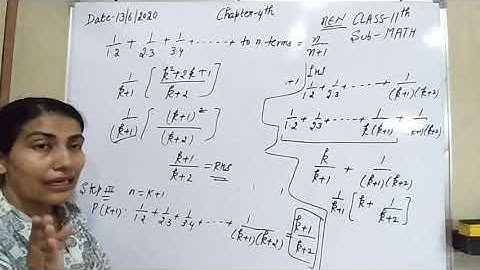 Date-13/6/2020 Chapter-4th NEN CLASS-11th
Sub-MATH
1/1·2 + 1/2·3 + 1/3·4 + ------ + to n terms = n/n+1
1/k+1 [ k²+2k+1 / k+2 ]
1/(k+1) [ (k+1)² / (k+2) ]
k+1/k+2 = RHS
Step III n=k+1
P(k+1): 1/1·2 + 1/2·3 + 1/3·4 + ---- + 1/(k+1)(k+2) = k+1/k+2
LHS
1/1·2 + 1/2·3 + ---- + 1/(k+1)(k+2)
1/1·2 + 1/2·3 + ---- + 1/k(k+1) + 1/(k+1)(k+2)
k/k+1 + 1/(k+1)(k+2)
1/k+1 [ k + 1/k+2 ]